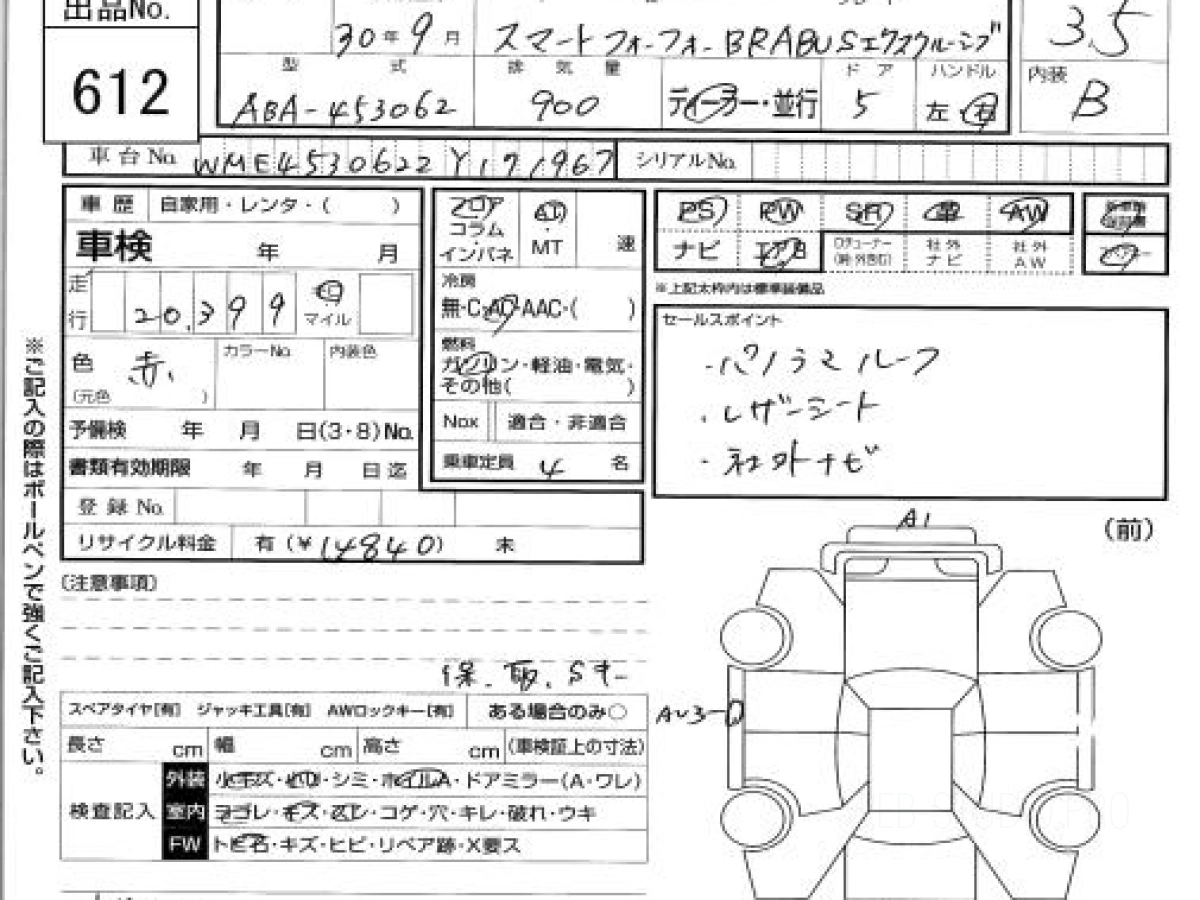 出品No.
612
30年9月
スマートフォーフォー BRABUSエクスクルーシブ
3.5
型式
ABA-453062
排気量
900
ディーラー・並行
ドア
5
ハンドル
左 右
内装
B
車台No. WME4530622Y171967
シリアルNo.
車歴 自家用・レンタ・( )
車検 年 月
走行 20,399 マイル
色 赤
(元色 )
カラーNo. 内装色
予備検 年 月 日(3・8)No.
書類有効期限 年 月 日迄
登録No.
リサイクル料金 有(¥14840) 未
フロア
コラム
インパネ
AT
MT
速
冷房
無・C・AC・AAC・( )
燃料
ガソリン・軽油・電気・
その他( )
Nox 適合・非適合
乗車定員 4 名
PS PW SR 革 AW
ナビ エアB
社外ナビ 社外AW
※上記太枠内は標準装備品
セールスポイント
・パノラマルーフ
・レザーシート
・社外ナビ
(前)
A1
※ご記入の際はボールペンで強くご記入下さい。
(注意事項)
保.取.Sキー
スペアタイヤ[有] ジャッキ工具[有] AWロックキー[有] ある場合のみ○
長さ cm 幅 cm 高さ cm (車検証上の寸法)
検査記入
外装 小キズ・凹・シミ・ホイルA・ドアミラー(A・ワレ)
室内 ヨゴレ・キズ・スレ・コゲ・穴・キレ・破れ・ウキ
FW トビ石・キズ・ヒビ・リペア跡・X要ス